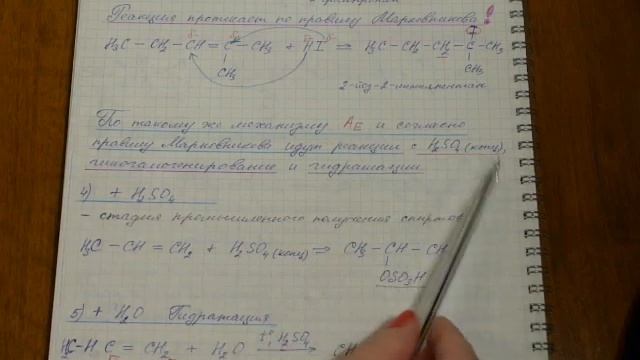 Реакция протекает по правилу Марковникова!
H₃C – CH₂ – CH = C – CH₃ + HI ⇒ H₃C – CH₂ – CH₂ – C – CH₃
CH₃ CH₃
2-йод-2-метилпентан
По такому же механизму AE и согласно
правилу Марковникова идут реакции с H₂SO₄ (конц),
гипогалогенирование и гидратации
4) + H₂SO₄
– стадия промышленного получения спиртов
H₃C – CH = CH₂ + H₂SO₄ (конц) ⇒ CH₃ – CH – CH
OSO₃H
5) + H₂O Гидратация
C = CH₂ + H₂O t° H₂SO₄ CH